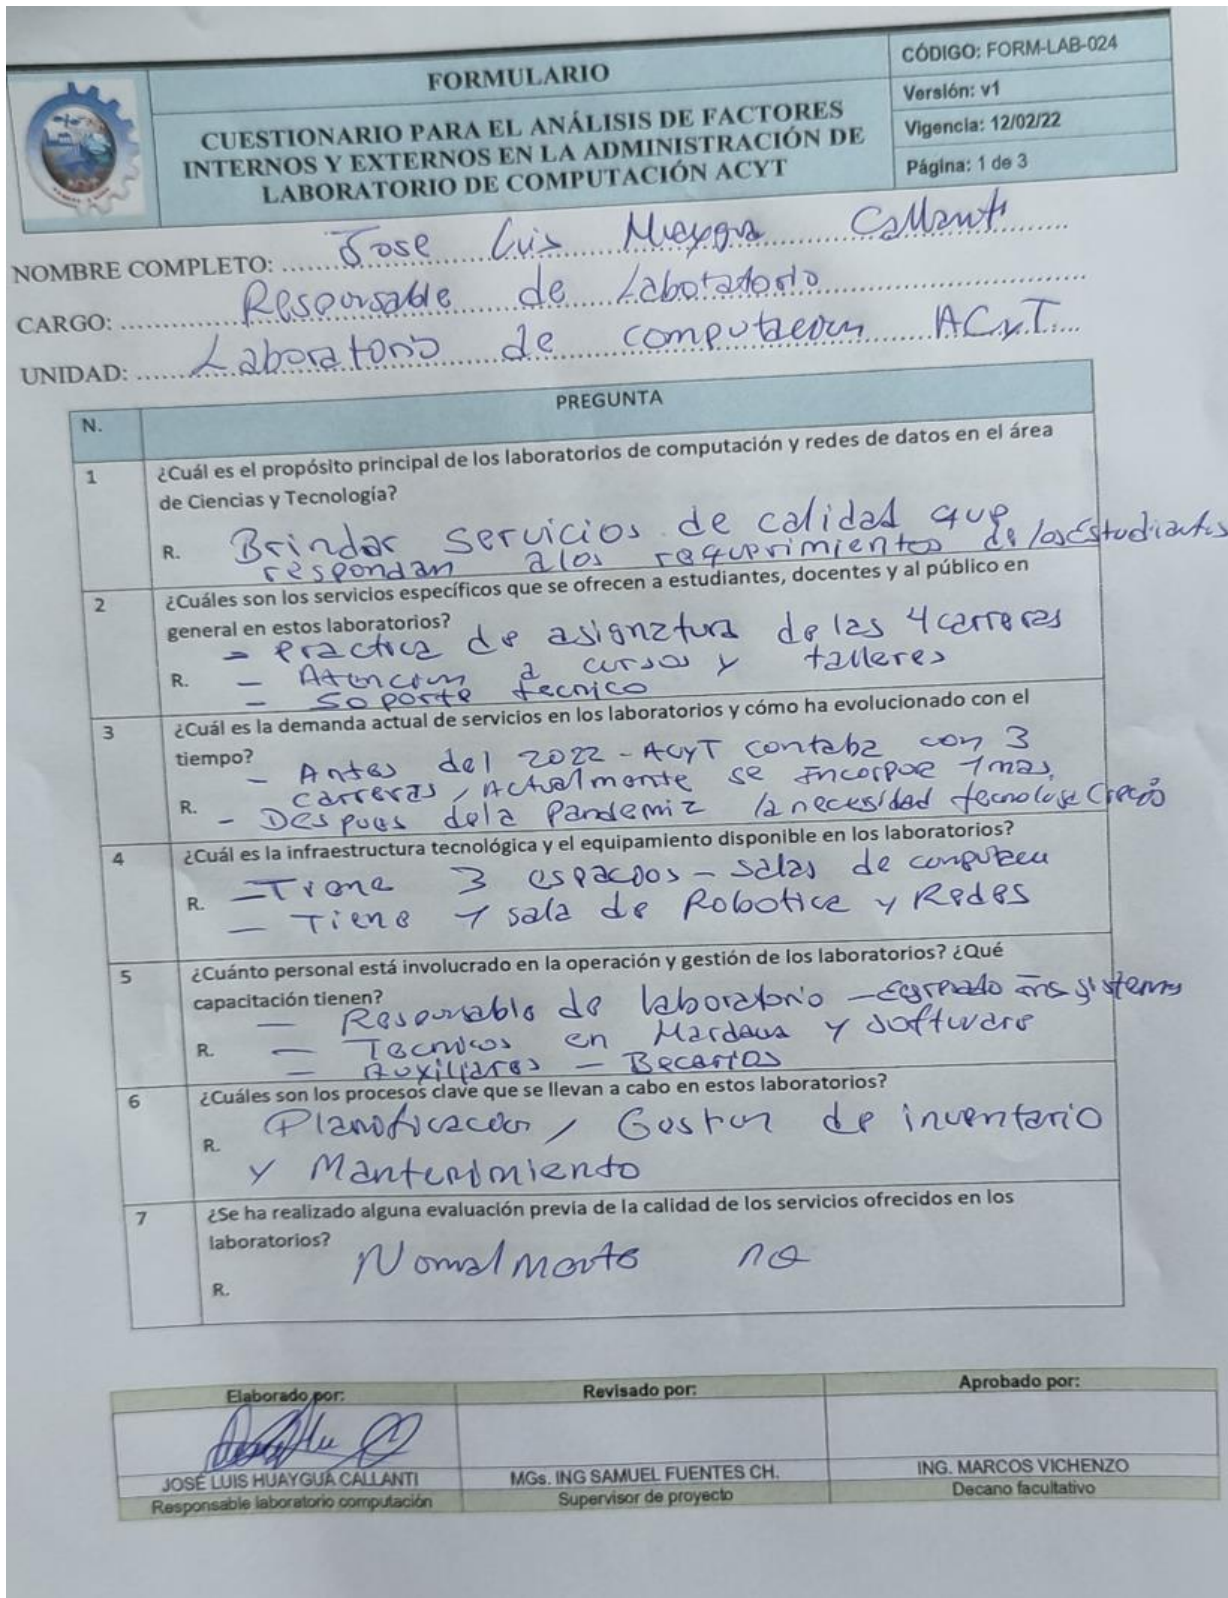 FORMULARIO
CUESTIONARIO PARA EL ANÁLISIS DE FACTORES
INTERNOS Y EXTERNOS EN LA ADMINISTRACIÓN DE
LABORATORIO DE COMPUTACIÓN ACYT
CÓDIGO: FORM-LAB-024
Versión: v1
Vigencia: 12/02/22
Página: 1 de 3
NOMBRE COMPLETO: Jose Luis Callanti
CARGO: Responsable de Laboratorio
UNIDAD: Laboratorio de computacion ACyT
N. PREGUNTA
1 ¿Cuál es el propósito principal de los laboratorios de computación y redes de datos en el área
de Ciencias y Tecnología?
R. Brindar servicios de calidad que
respondan a los requerimientos de los Estudiantes
2 ¿Cuáles son los servicios específicos que se ofrecen a estudiantes, docentes y al público en
general en estos laboratorios?
- practica de asignatura de las 4 carreras
R. - Atencion a cursos y talleres
- Soporte tecnico
3 ¿Cuál es la demanda actual de servicios en los laboratorios y cómo ha evolucionado con el
tiempo?
- Antes del 2022 - ACyT contaba con 3
carreras, Actualmente se Incorpoe 1 mas,
R. - Despues dela Pandemia la necesidad Creció
4 ¿Cuál es la infraestructura tecnológica y el equipamiento disponible en los laboratorios?
R. - Tiene 3 espacios - salas de
- Tiene 1 sala de Robotica y Redes
5 ¿Cuánto personal está involucrado en la operación y gestión de los laboratorios? ¿Qué
capacitación tienen?
- Responsable de laboratorio - Egresado Ing sistemas
R. - Tecnicos en y software
- Auxiliares - Becarios
6 ¿Cuáles son los procesos clave que se llevan a cabo en estos laboratorios?
Planificacion, Gestion de inventario
R. y Mantenimiento
7 ¿Se ha realizado alguna evaluación previa de la calidad de los servicios ofrecidos en los
laboratorios?
no
R.
Elaborado por: Revisado por: Aprobado por:
JOSÉ LUIS HUAYGUA CALLANTI MGs. ING SAMUEL FUENTES CH. ING. MARCOS VICHENZO
Responsable laboratorio computación Supervisor de proyecto Decano facultativo